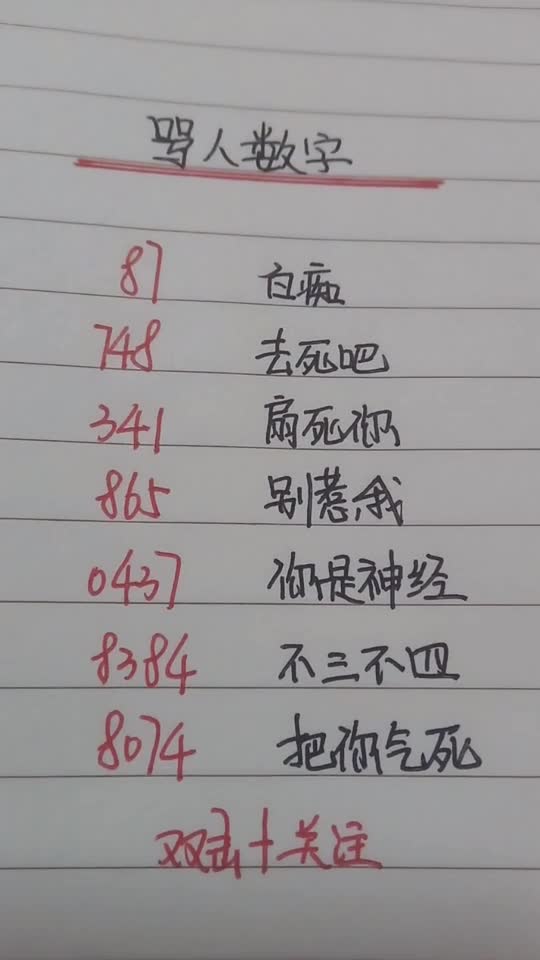 骂人数字
87 白痴
748 去死吧
341 扇死你
865 别惹我
0437 你是神经
8384 不三不四
8074 把你气死
双击+关注